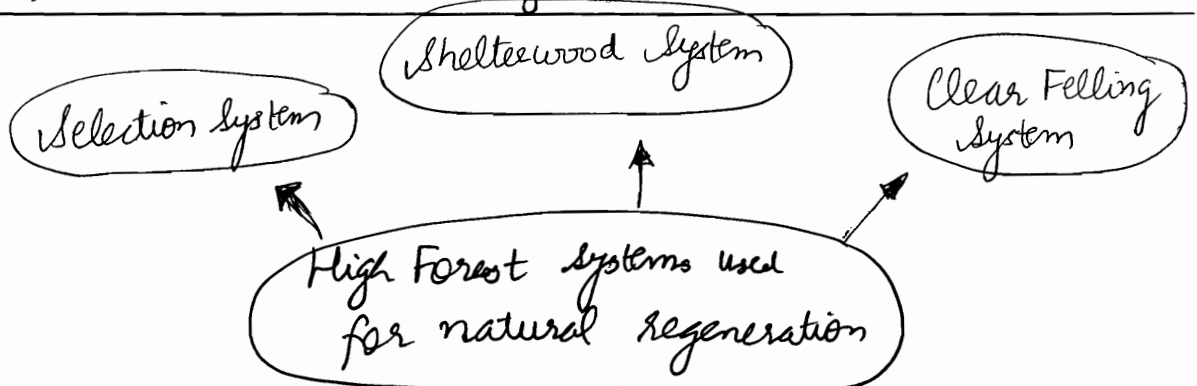 Shelterwood System
Selection System
Clear Felling
System
High Forest systems used
for natural regeneration